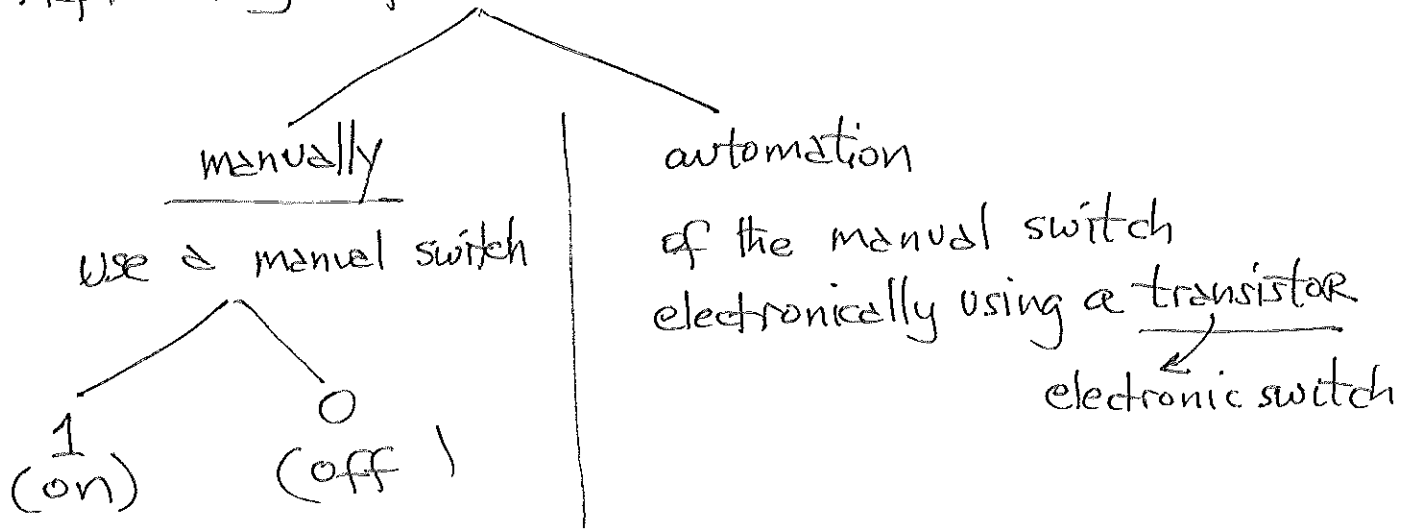 manually
use a manuel switch
1
(on)
0
(off)
automation
of the manual switch
electronically using a transistoR
electronic switch